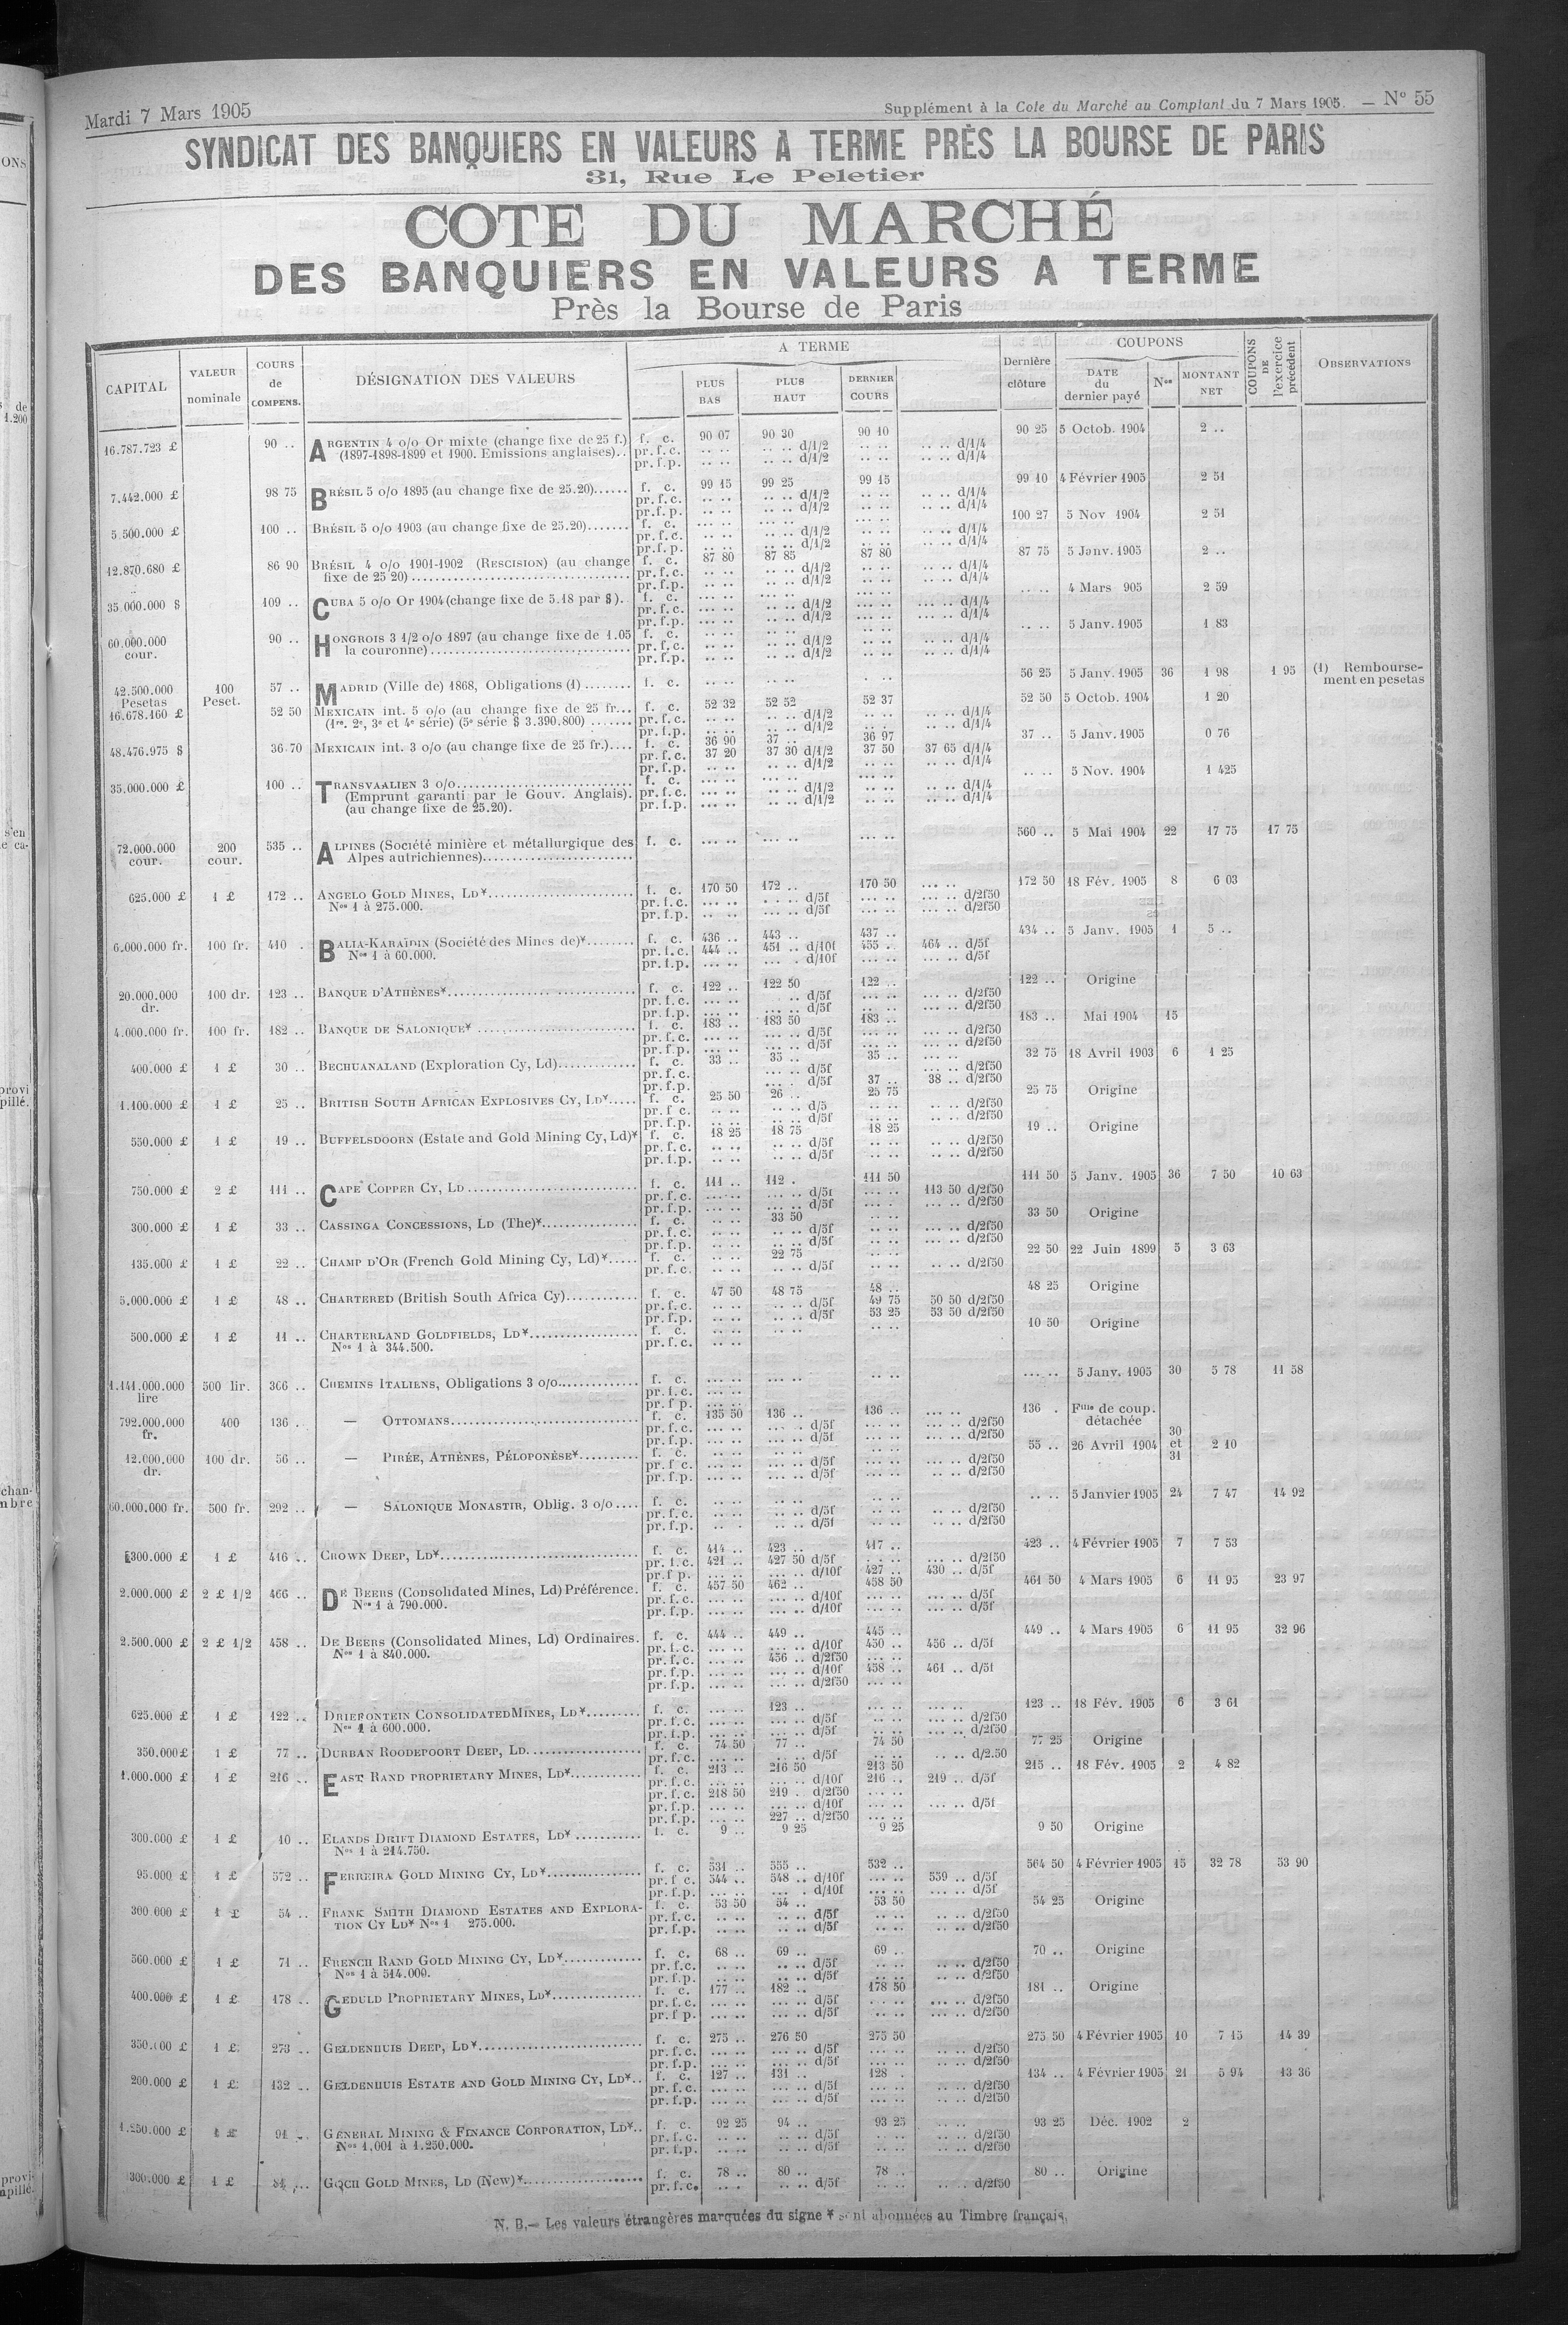 Mardi 7 Mars 1905
Supplément à la Cote du Marché au Comptant du 7 Mars 1905. — N° 55
SYNDICAT DES BANQUIERS EN VALEURS A TERME PRÈS LA BOURSE DE PARIS
31, Rue Le Peletier
COTE DU MARCHÉ
DES BANQUIERS EN VALEURS A TERME
Près la Bourse de Paris
CAPITAL | VALEUR nominale | COURS de COMPENS. | DÉSIGNATION DES VALEURS | A TERME | PLUS BAS | PLUS HAUT | DERNIER COURS | Dernière clôture | COUPONS | DATE du dernier payé | Nos | MONTANT NET | COUPONS DE l'exercice précédent | OBSERVATIONS
16.787.723 £ 90 .. ARGENTIN 4 o/o Or mixte (change fixe de 25 f.) f. c. 90 07 90 30 90 10 90 25 5 Octob. 1904 2 ..
(1897-1898-1899 et 1900. Emissions anglaises).. pr. f. c. .. .. .. .. d/1/2 .. .. .. .. d/1/4
pr. f. p. .. .. .. .. d/1/2 .. .. .. .. d/1/4
7.442.000 £ 98 75 BRÉSIL 5 o/o 1895 (au change fixe de 25.20)...... f. c. 99 15 99 25 99 15 99 10 4 Février 1905 2 51
pr. f. c. .. .. .. .. d/1/2 .. .. .. .. d/1/4
pr. f. p. .. .. .. .. d/1/2 .. .. .. .. d/1/4
5.500.000 £ 100 .. BRÉSIL 5 o/o 1903 (au change fixe de 25.20)....... f. c. ... .. ... .. ... .. 100 27 5 Nov 1904 2 51
pr. f. c. .. .. .. .. d/1/2 .. .. .. .. d/1/4
pr. f. p. .. .. .. .. d/1/2 .. .. .. .. d/1/4
12.870.680 £ 86 90 BRÉSIL 4 o/o 1901-1902 (RESCISION) (au change f. c. 87 80 87 85 87 80 87 75 5 Janv. 1905 2 ..
fixe de 25 20) pr. f. c. .. .. .. .. d/1/2 .. .. .. .. d/1/4
pr. f. p. .. .. .. .. d/1/2 .. .. .. .. d/1/4
35.000.000 $ 109 .. CUBA 5 o/o Or 1904 (change fixe de 5.18 par $). f. c. ... .. ... .. ... .. .. .. 4 Mars 905 2 59
pr. f. c. ... .. ... .. d/1/2 ... .. ... .. d/1/4
pr. f. p. ... .. ... .. d/1/2 ... .. ... .. d/1/4
60.000.000 cour. 90 .. HONGROIS 3 1/2 o/o 1897 (au change fixe de 1.05 f. c. .. .. .. .. .. .. .. .. 5 Janv. 1905 1 83
la couronne) pr. f. c. .. .. .. .. d/1/2 .. .. .. .. d/1/4
pr. f. p. .. .. .. .. d/1/2 .. .. .. .. d/1/4
42.500.000 Pesetas 100 Peset. 57 .. MADRID (Ville de) 1868, Obligations (1) ........ f. c. .. .. .. .. . .. 56 25 5 Janv. 1905 36 1 98 1 95 (1) Rembourse-
ment en pesetas
16.678.160 £ 52 50 MEXICAIN int. 5 o/o (au change fixe de 25 fr... f. c. 52 32 52 52 52 37 52 50 5 Octob. 1904 1 20
(1re. 2e, 3e et 4e série) (5e série $ 3.390.800) ....... pr. f. c. .. .. .. .. d/1/2 .. .. .. .. d/1/4
pr. f. p. .. .. .. .. d/1/2 .. .. .. .. d/1/4
48.476.975 $ 36.70 MEXICAIN int. 3 o/o (au change fixe de 25 fr.).... f. c. 36 90 37 .. 36 97 37 .. 5 Janv. 1905 0 76
pr. f. c. 37 20 37 30 d/1/2 37 50 37 65 d/1/4
pr. f. p. .. .. .. .. d/1/2 .. .. .. .. d/1/4
35.000.000 £ 100 .. TRANSVAALIEN 3 o/o f. c. ... .. ... .. ... .. .. .. 5 Nov. 1904 1 425
(Emprunt garanti par le Gouv. Anglais). pr. f. c. ... .. ... .. d/1/2 ... .. .. .. d/1/4
(au change fixe de 25.20). pr. f. p. ... .. ... .. d/1/2 ... .. .. .. d/1/4
72.000.000 cour. 200 cour. 535 .. ALPINES (Société minière et métallurgique des f. c. ... .. ... .. ... .. 560 .. 5 Mai 1904 22 17 75 17 75
Alpes autrichiennes)
625.000 £ 1 £ 172 .. ANGELO GOLD MINES, LD¥ f. c. 170 50 172 .. 170 50 ... .. 172 50 18 Fév. 1905 8 6 03
Nos 1 à 275.000. pr. f. c. ... .. d/5f ... .. ... .. d/2f50
pr. f. p. .. .. ... .. d/5f ... .. ... .. d/2f50
6.000.000 fr. 100 fr. 410 . BALIA-KARAÏDIN (Société des Mines de)¥ f. c. 436 .. 443 .. 437 .. 434 .. 5 Janv. 1905 1 5 ..
Nos 1 à 60.000. pr. f. c. 444 .. 451 .. d/10f 455 . 464 .. d/5f
pr. f. p. ... .. ... . d/10f ... .. ... .. d/5f
20.000.000 dr. 100 dr. 123 .. BANQUE D'ATHÈNES¥ f. c. 122 .. 122 50 122 .. 122 .. Origine
pr. f. c. ... .. .. d/5f ... .. ... .. d/2f50
pr. f. p. ... .. .. d/5f .. .. ... .. d/2f50
4.000.000 fr. 100 fr. 182 .. BANQUE DE SALONIQUE¥ f. c. 183 .. 183 50 183 .. 183 .. Mai 1904 15
pr. f. c. ... .. ... .. d/5f ... .. ... .. d/2f50
pr. f. p. ... .. ... .. d/5f ... .. ... .. d/2f50
400.000 £ 1 £ 30 .. BECHUANALAND (Exploration Cy, Ld) f. c. 33 .. 35 .. 35 .. ... .. 32 75 18 Avril 1903 6 1 25
pr. f. c. ... .. d/5f ... .. d/2f50
pr. f. p. ... . d/5f 37 .. 38 .. d/2f50
1.100.000 £ 1 £ 25 .. BRITISH SOUTH AFRICAN EXPLOSIVES CY, LD¥ f. c. 25 50 26 .. 25 75 25 75 Origine
pr. f. c. .. .. .. .. d/5 .. .. .. .. d/2f50
pr. f. p. .. .. .. .. d/5f .. .. .. .. d/2f50
550.000 £ 1 £ 19 .. BUFFELSDOORN (Estate and Gold Mining Cy, Ld)¥ f. c. 18 25 18 75 18 25 19 .. Origine
pr. f. c. .. .. .. .. d/5f .. .. .. .. d/2f50
pr. f. p. .. .. .. .. d/5f .. .. .. .. d/2f50
750.000 £ 2 £ 111 .. CAPE COPPER CY, LD f. c. 111 .. 112 . 111 50 111 50 5 Janv. 1905 36 7 50 10 63
pr. f. c. ... .. ... .. d/5f ... .. 113 50 d/2f50
pr. f. p. ... .. ... .. d/5f ... . ... .. d/2f50
300.000 £ 1 £ 33 .. CASSINGA CONCESSIONS, LD (The)¥ f. c. .. .. 33 50 .. .. 33 50 Origine
pr. f. c. .. .. .. .. d/5f .. .. ... .. d/2f50
pr. f. p. .. .. .. .. d/5f .. .. ... .. d/2f50
135.000 £ 1 £ 22 .. CHAMP D'OR (French Gold Mining Cy, Ld)¥ f. c. .. .. 22 75 .. .. 22 50 22 Juin 1899 5 3 63
pr. f. c. .. .. .. .. d/5f .. .. .. .. d/2f50
5.000.000 £ 1 £ 48 .. CHARTERED (British South Africa Cy) f. c. 47 50 48 75 48 .. 48 25 Origine
pr. f. c. .. .. .. .. d/5f 49 75 50 50 d/2f50
pr. f. p. .. .. .. .. d/5f 53 25 53 50 d/2f50
500.000 £ 1 £ 11 .. CHARTERLAND GOLDFIELDS, LD¥ f. c. .. .. .. .. .. .. 10 50 Origine
Nos 1 à 344.500. pr. f. c. .. ..
1.141.000.000 lire 500 lir. 366 .. CHEMINS ITALIENS, Obligations 3 o/o f. c. ... .. ... .. .. .. ... .. 5 Janv. 1905 30 5 78 11 58
pr. f. c. ... ..
pr. f. p. ... ..
792.000.000 fr. 400 136 .. — OTTOMANS f. c. 135 50 136 .. 136 .. ... .. 136 . Flle de coup. détachée
pr. f. c. ... .. ... .. d/5f ... .. ... .. d/2f50
pr. f. p. ... .. ... .. d/5f ... .. ... .. d/2f50
12.000.000 dr. 100 dr. 56 .. — PIRÉE, ATHÈNES, PÉLOPONÈSE¥ f. c. ... .. ... .. .. .. 55 .. 26 Avril 1904 30 et 31 2 10
pr. f. c. ... .. ... .. d/5f .. .. ... .. d/2f50
pr. f. p. ... .. ... .. d/5f .. .. .. .. d/2f50
60.000.000 fr. 500 fr. 292 .. — SALONIQUE MONASTIR, Oblig. 3 o/o f. c. .. .. .. .. .. .. .. .. 5 Janvier 1905 24 7 47 14 92
pr. f. c. .. .. .. .. d/5f .. .. .. .. d/2f50
pr. f. p. .. . .. .. d/5f .. .. .. .. d/2f50
300.000 £ 1 £ 416 .. CROWN DEEP, LD¥ f. c. 414 .. 423 .. 417 .. 423 .. 4 Février 1905 7 7 53
pr. f. c. 421 .. 427 50 d/5f ... .. d/2f50
pr. f. p. ... .. ... .. d/10f 427 .. 430 .. d/5f
2.000.000 £ 2 £ 1/2 466 .. DE BEERS (Consolidated Mines, Ld) Préférence. f. c. 457 50 462 .. 458 50 461 50 4 Mars 1905 6 11 95 23 97
Nos 1 à 790.000. pr. f. c. ... .. ... .. d/10f ... .. ... .. d/5f
pr. f. p. ... .. ... .. d/10f ... .. ... .. d/5f
2.500.000 £ 2 £ 1/2 458 .. DE BEERS (Consolidated Mines, Ld) Ordinaires. f. c. 444 .. 449 .. 445 .. 449 .. 4 Mars 1905 6 11 95 32 96
Nos 1 à 840.000. pr. f. c. ... .. ... .. d/10f 450 .. 456 .. d/5f
pr. f. c. ... .. 456 .. d/2f50 ... ..
pr. f. p. ... .. ... .. d/10f 458 .. 461 .. d/5f
pr. f. p. ... .. ... .. d/2f50 ... ..
625.000 £ 1 £ 122 .. DRIEFONTEIN CONSOLIDATED MINES, LD¥ f. c. ... .. 123 .. ... .. ... .. 123 .. 18 Fév. 1905 6 3 61
Nos 1 à 600.000. pr. f. c. ... .. ... .. d/5f ... .. ... .. d/2f50
pr. f. p. ... .. ... .. d/5f ... .. ... .. d/2f50
350.000 £ 1 £ 77 .. DURBAN ROODEPOORT DEEP, LD f. c. 74 50 77 .. 74 50 77 25 Origine
pr. f. c. ... .. .. .. d/5f .. .. .. .. d/2.50
1.000.000 £ 1 £ 216 .. EAST RAND PROPRIETARY MINES, LD¥ f. c. 213 .. 216 50 213 50 215 .. 18 Fév. 1905 2 4 82
pr. f. c. ... .. ... .. d/10f 216 .. 219 .. d/5f
pr. f. c. 218 50 219 . d/2f50 ... ..
pr. f. p. ... .. ... .. d/10f ... .. ... .. d/5f
pr. f. p. ... .. 227 .. d/2f50 ... ..
300.000 £ 1 £ 10 .. ELANDS DRIFT DIAMOND ESTATES, LD¥ f. c. 9 .. 9 25 9 25 9 50 Origine
Nos 1 à 214.750.
95.000 £ 1 £ 572 .. FERREIRA GOLD MINING CY, LD¥ f. c. 531 .. 555 .. 532 .. 564 50 4 Février 1905 15 32 78 53 90
pr. f. c. 544 .. 548 .. d/10f ... .. 559 .. d/5f
pr. f. p. ... .. ... . d/10f ... .. ... .. d/5f
300.000 £ 1 £ 54 .. FRANK SMITH DIAMOND ESTATES AND EXPLORA- f. c. 53 50 54 .. 53 50 54 25 Origine
TION CY LD¥ Nos 1 275.000. pr. f. c. .. .. .. .. d/5f .. .. .. .. d/2f50
pr. f. p. .. .. .. .. d/5f .. .. .. .. d/2f50
560.000 £ 1 £ 71 .. FRENCH RAND GOLD MINING CY, LD¥ f. c. 68 .. 69 .. 69 .. 70 .. Origine
Nos 1 à 514.000. pr. f. c. .. .. .. .. d/5f .. .. .. .. d/2f50
pr. f. p. .. .. .. .. d/5f .. .. .. .. d/2f50
400.000 £ 1 £ 178 .. GEDULD PROPRIETARY MINES, LD¥ f. c. 177 .. 182 .. 178 50 181 .. Origine
pr. f. c. ... .. ... .. d/5f ... .. ... .. d/2f50
pr. f. p. ... .. ... .. d/5f ... .. ... .. d/2f50
350.000 £ 1 £ 273 .. GELDENHUIS DEEP, LD¥ f. c. 275 .. 276 50 275 50 275 50 4 Février 1905 10 7 15 14 39
pr. f. c. ... .. ... .. d/5f ... .. ... .. d/2f50
pr. f. p. ... .. ... .. d/5f ... .. ... .. d/2f50
200.000 £ 1 £ 132 .. GELDENHUIS ESTATE AND GOLD MINING CY, LD¥.. f. c. 127 .. 131 .. 128 . 134 .. 4 Février 1905 21 5 94 13 36
pr. f. c. ... .. ... .. d/5f ... .. .. .. d/2f50
pr. f. p. ... .. ... .. d/5f ... .. .. .. d/2f50
1.250.000 £ 1 £ 91 .. GÉNÉRAL MINING & FINANCE CORPORATION, LD¥.. f. c. 92 25 94 .. 93 25 .. .. 93 25 Déc. 1902 2
Nos 1.001 à 1.250.000. pr. f. c. .. .. .. .. d/5f .. .. .. .. d/2f50
pr. f. p. .. .. .. .. d/5f .. .. .. .. d/2f50
300.000 £ 1 £ 81 .. GOCH GOLD MINES, LD (New)¥ f. c. 78 .. 80 .. 78 .. 80 .. Origine
pr. f. c. .. . .. .. d/5f .. .. .. .. d/2f50
N. B.— Les valeurs étrangères marquées du signe ¥ sont abonnées au Timbre français.